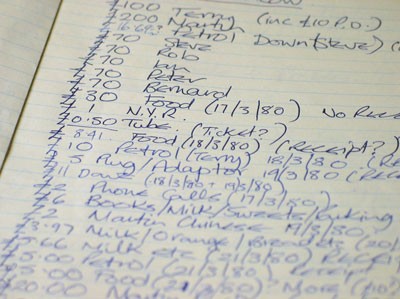 £100 Terry (inc £10 P.O.)
£200 Martin
£16.693 Petrol Down (Steve)
£70 Steve
£70 Rob
£70 Ian
£70 Peter
£70 Bernard
£30 Food (17/3/80) No
£1 N.Y.R.
£0.50 Tube (Ticket?)
£8.41 Food (18/3/80) (receipt?)
£10 Petrol (Terry) 18/3/80
£5 Plug/Adaptor 19/3/80
£11 Dave (18/3/80 - 19/3/80)
£2 Phone Calls (17/3/80)
£6 Books/Milk/Sweets/Parking
£2 Martin Chinese 19/3/80
£3.97 Milk/Orange/
5.66 Milk etc (21/3/80)
£5.00 Petrol (21/3/80) Receipt
£5.00 Food (21/3/80) More
£20.00 Martin